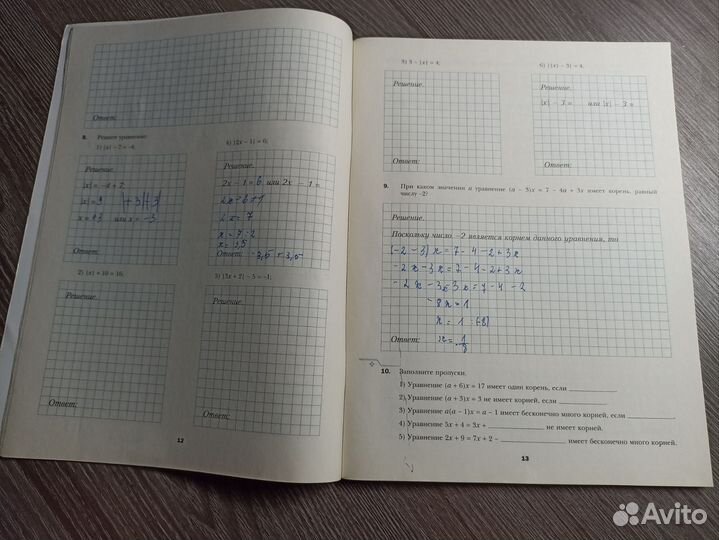 Ответ:
8. Решите уравнение:
1) |x| − 7 = −4;
4) |2x − 1| = 6;
Решение.
|x| = −4 + 7;
|x| = 3
x = +3 или x = −3
Ответ:
Решение.
2x − 1 = 6 или 2x − 1 =
2x = 6 + 1
2x = 7
x = 7 : 2
x = 3,5
Ответ: −3,5 + 3,5
2) |x| + 10 = 16;
5) |3x + 2| − 5 = −1;
Решение.
Ответ:
Решение.
Ответ:
12
3) 3 − |x| = 4;
6) ||x| − 3| = 4.
Решение.
Ответ:
Решение.
|x| − 3 = или |x| − 3 =
Ответ:
9. При каком значении a уравнение (a − 3)x = 7 − 4a + 3x имеет корень, равный
числу −2?
Решение.
Поскольку число −2 является корнем данного уравнения, то
(−2 − 3) x = 7 − 4 − 2 + 3x
− 2x − 3x = 7 − 4 − 2 + 3x
− 2x − 3x − 3x = 7 − 4 − 2
− 8x = 1
x = 1 : (−8)
Ответ: x = 1/−8
10. Заполните пропуски.
1) Уравнение (a + 6)x = 17 имеет один корень, если
2) Уравнение (a + 3)x = 3 не имеет корней, если
3) Уравнение a(a − 1)x = a − 1 имеет бесконечно много корней, если .
4) Уравнение 5x + 4 = 3x + не имеет корней.
5) Уравнение 2x + 9 = 7x + 2 − имеет бесконечно много корней.
13
Avito